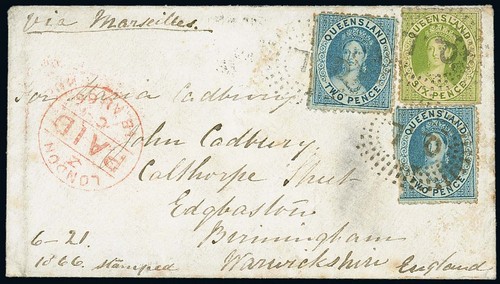 via Marseilles.
QUEENSLAND
TWO PENCE
QUEENSLAND
SIX PENCE
QUEENSLAND
TWO PENCE
for Maria Cadbury
John Cadbury
Calthorpe Street
Edgbaston
Birmingham
Warwickshire England
LONDON
PAID
6-21.
1866 stamped